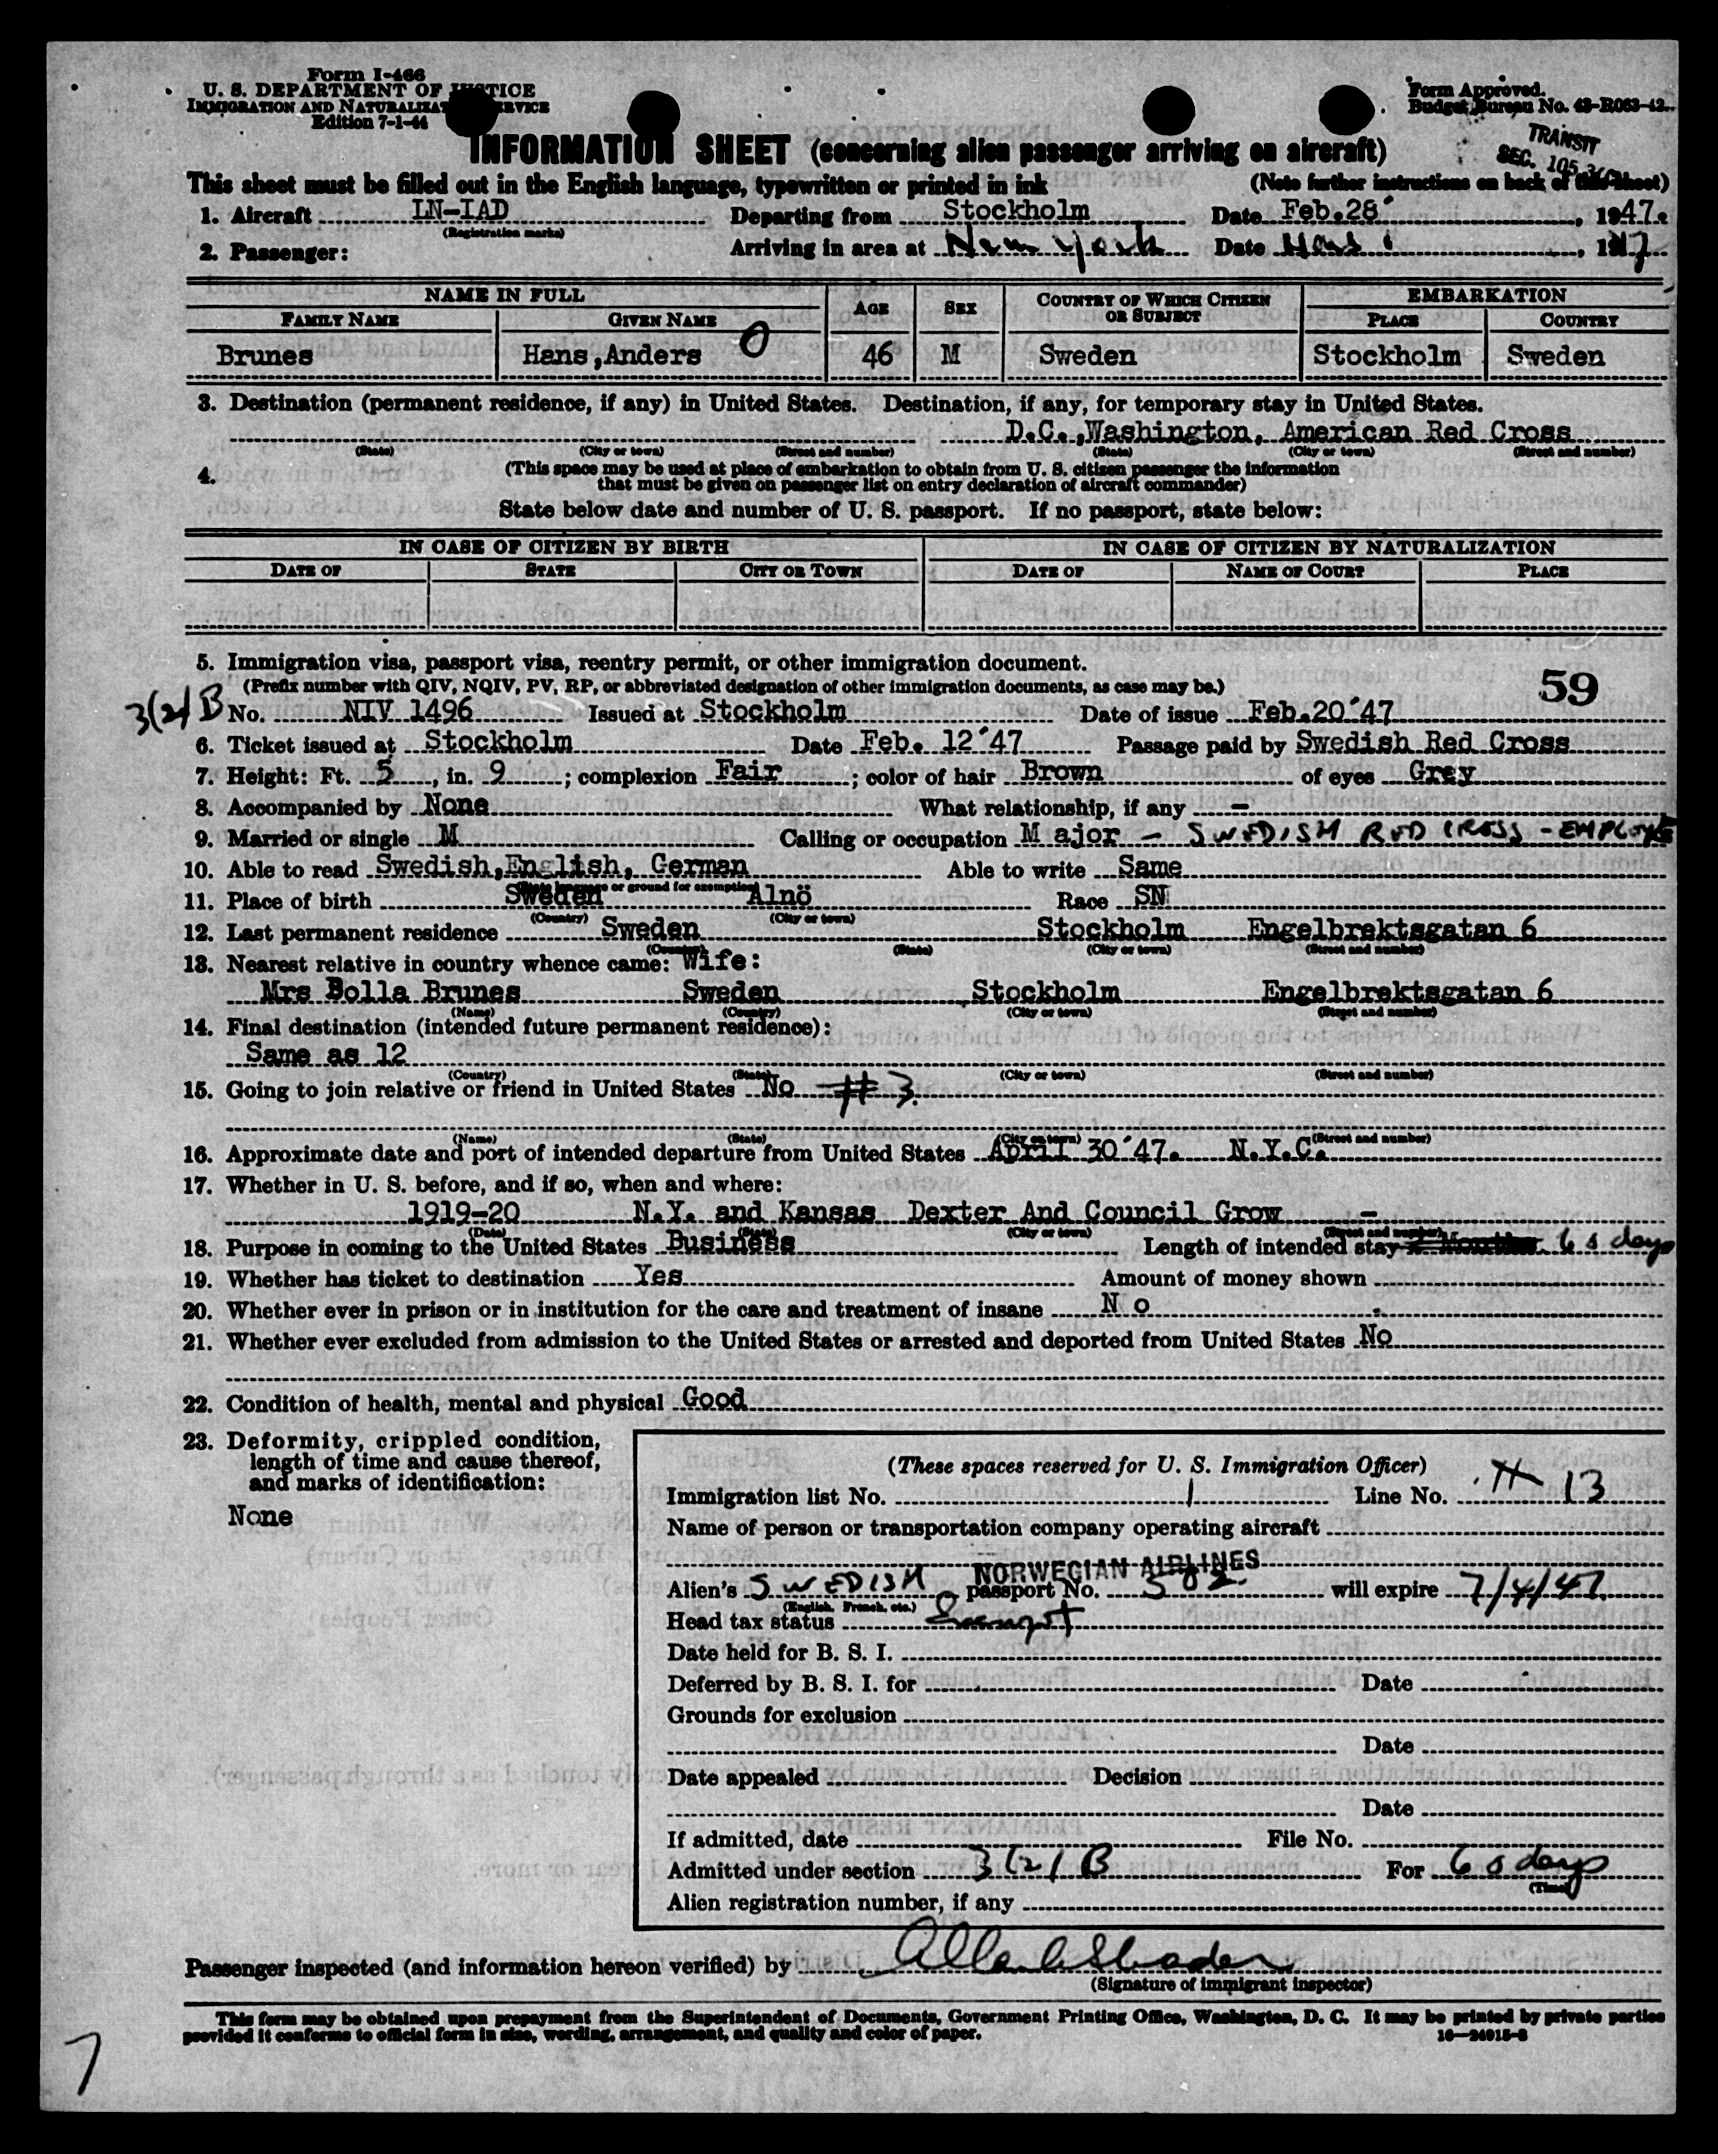 Form I-466
U. S. DEPARTMENT OF JUSTICE
IMMIGRATION AND NATURALIZATION SERVICE
Edition 7-1-44
Form Approved.
Budget Bureau No. 43-R063-42.
TRANSIT
SEC. 105.3(
INFORMATION SHEET (concerning alien passenger arriving on aircraft)
This sheet must be filled out in the English language, typewritten or printed in ink (Note further instructions on back of this sheet)
1. Aircraft LN-IAD Departing from Stockholm Date Feb.28, 1947.
(Registration marks)
2. Passenger: Arriving in area at New York Date 1, 1947
NAME IN FULL AGE SEX COUNTRY OF WHICH CITIZEN OR SUBJECT EMBARKATION
FAMILY NAME GIVEN NAME PLACE COUNTRY
Brunes Hans,Anders O 46 M Sweden Stockholm Sweden
3. Destination (permanent residence, if any) in United States. Destination, if any, for temporary stay in United States.
D.C.,Washington, American Red Cross
(State) (City or town) (Street and number) (State) (City or town) (Street and number)
4. (This space may be used at place of embarkation to obtain from U. S. citizen passenger the information
that must be given on passenger list on entry declaration of aircraft commander)
State below date and number of U. S. passport. If no passport, state below:
IN CASE OF CITIZEN BY BIRTH IN CASE OF CITIZEN BY NATURALIZATION
DATE OF STATE CITY OR TOWN DATE OF NAME OF COURT PLACE
5. Immigration visa, passport visa, reentry permit, or other immigration document.
(Prefix number with QIV, NQIV, PV, RP, or abbreviated designation of other immigration documents, as case may be.) 59
3(2)B No. NIV 1496 Issued at Stockholm Date of issue Feb.20´47
6. Ticket issued at Stockholm Date Feb. 12´47 Passage paid by Swedish Red Cross
7. Height: Ft. 5, in. 9; complexion Fair; color of hair Brown of eyes Grey
8. Accompanied by None What relationship, if any -
9. Married or single M Calling or occupation Major - SWEDISH RED CROSS - EMPLOYEE
10. Able to read Swedish,English, German Able to write Same
(State language or ground for exemption)
11. Place of birth Sweden Alnö Race SN
(Country) (City or town)
12. Last permanent residence Sweden Stockholm Engelbrektsgatan 6
(Country) (State) (City or town) (Street and number)
13. Nearest relative in country whence came: Wife:
Mrs Bolla Brunes Sweden Stockholm Engelbrektsgatan 6
(Name) (Country) (City or town) (Street and number)
14. Final destination (intended future permanent residence):
Same as 12
(Country) (State) (City or town) (Street and number)
15. Going to join relative or friend in United States No # 3.
(Name) (State) (City or town) (Street and number)
16. Approximate date and port of intended departure from United States April 30´47. N.Y.C.
17. Whether in U. S. before, and if so, when and where:
1919-20 N.Y. and Kansas Dexter And Council Grow -
(Date) (State) (City or town) (Street and number)
18. Purpose in coming to the United States Business Length of intended stay 60 days
19. Whether has ticket to destination Yes Amount of money shown
20. Whether ever in prison or in institution for the care and treatment of insane No
21. Whether ever excluded from admission to the United States or arrested and deported from United States No
22. Condition of health, mental and physical Good
23. Deformity, crippled condition,
length of time and cause thereof,
and marks of identification:
None
(These spaces reserved for U. S. Immigration Officer)
Immigration list No. 1 Line No. 13
Name of person or transportation company operating aircraft
NORWEGIAN AIRLINES
Alien's SWEDISH passport No. 502 will expire 7/4/47
(English, French, etc.)
Head tax status Exempt
Date held for B. S. I.
Deferred by B. S. I. for Date
Grounds for exclusion
Date
Date appealed Decision
Date
If admitted, date File No.
Admitted under section 3(2)B For 60 days
(Time)
Alien registration number, if any
Passenger inspected (and information hereon verified) by
(Signature of immigrant inspector)
This form may be obtained upon prepayment from the Superintendent of Documents, Government Printing Office, Washington, D. C. It may be printed by private parties
provided it conforms to official form in size, wording, arrangement, and quality and color of paper. 16—24915-2
7